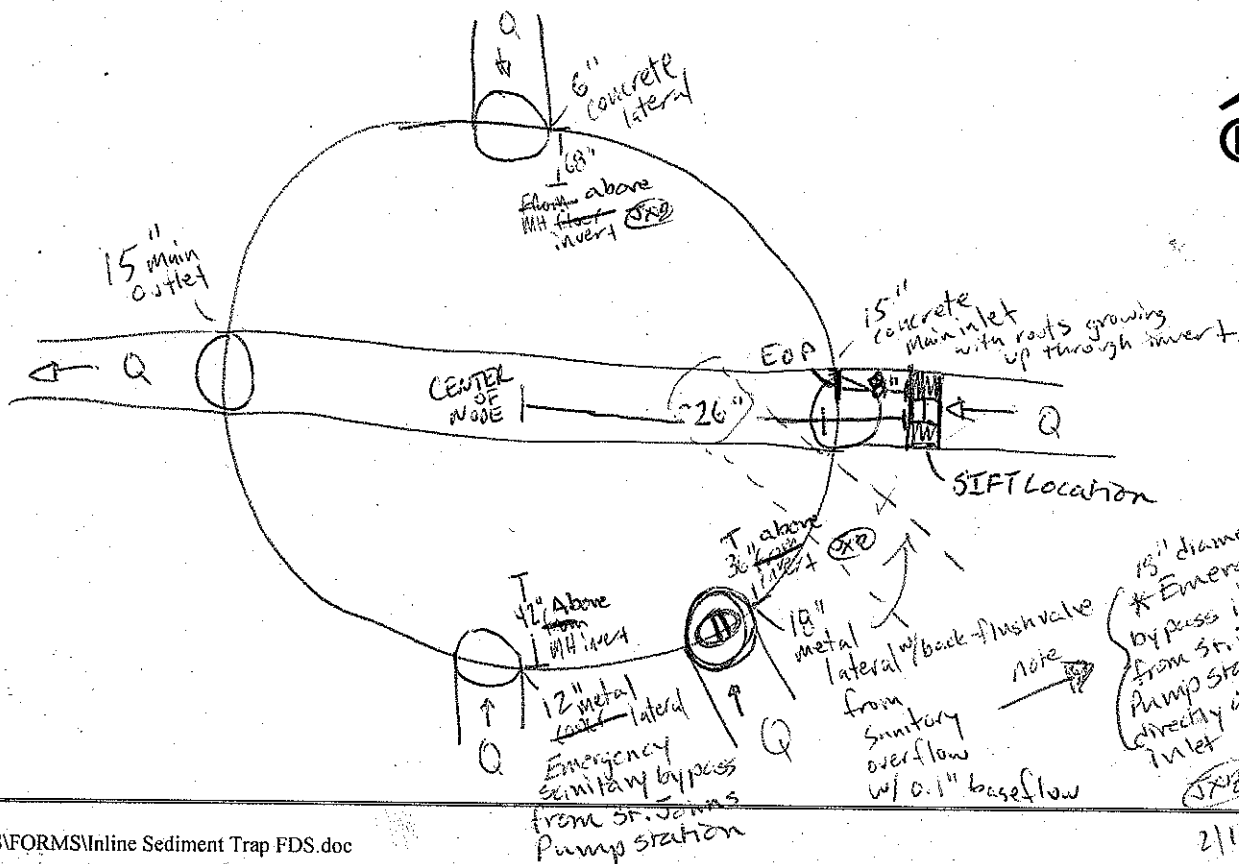 Q
6"
concrete
lateral
68"
From above
MH floor
invert JXB
15" main
outlet
15"
concrete
main inlet
with roots growing
up through invert.
EOP
8"
Q
CENTER
OF
NODE
26"
Q
SIFT Location
36" above
from
invert JXB
42" Above
from
MH invert
12" metal
outlet lateral
Q
Emergency
sanitary bypass
from St. Johns
Pump station
Q
18"
metal
lateral w/ back-flush valve
from
sanitary
overflow
w/ 0.1" baseflow
note
* Emerg
bypass
from St.
Pump Sta
directly
inlet
JXB
S\FORMS\Inline Sediment Trap FDS.doc
2/1